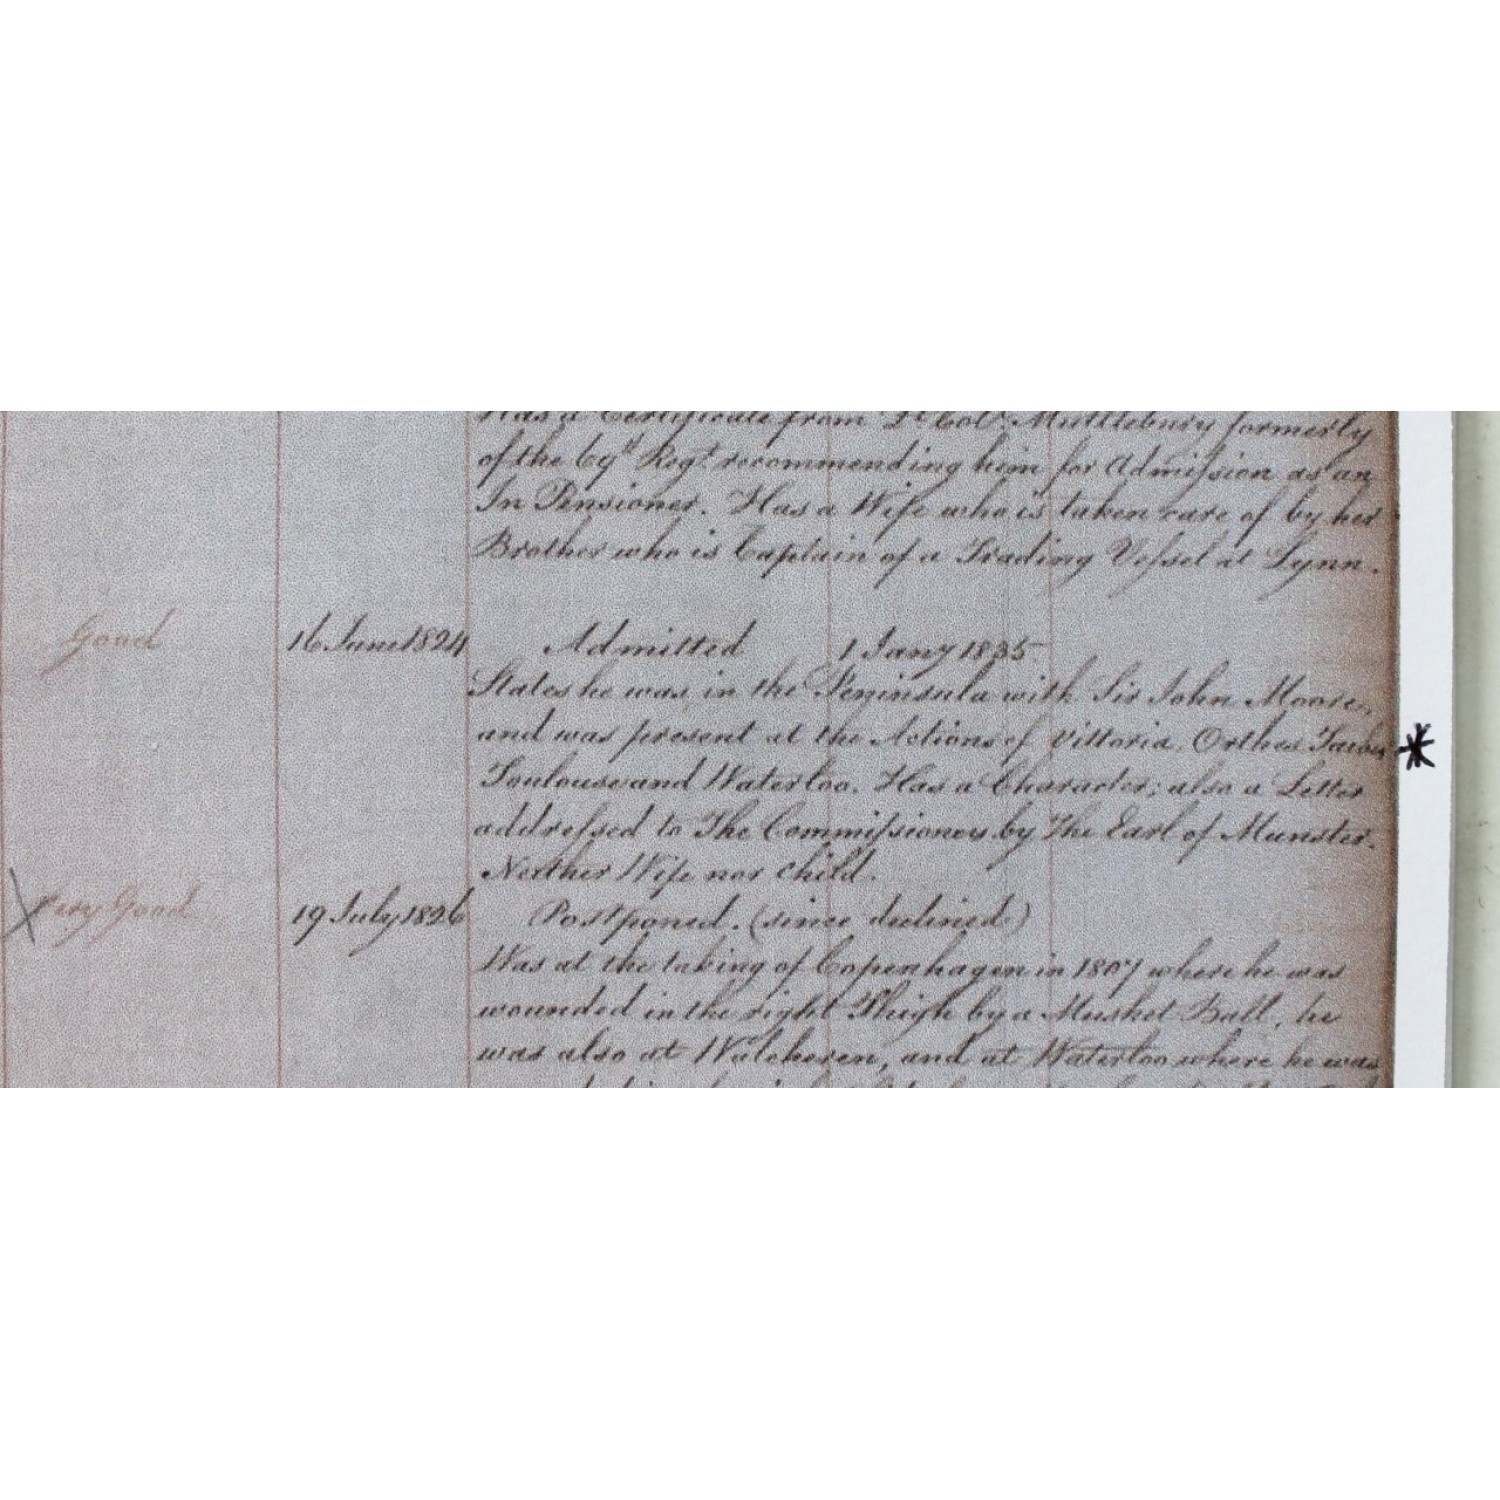 Has a Certificate from Lt Col. Muttlebury formerly
of the 69th Regt. recommending him for Admission as an
In Pensioner. Has a Wife who is taken care of by her
Brother who is Captain of a Trading Vessel at Lynn.
Good 16 June 1824 Admitted 1 Jany 1835
States he was in the Peninsula with Sir John Moore,
and was present at the Actions of Vittoria, Orthes Tarbes
Toulouse and Waterloo. Has a Character; also a Letter
addressed to The Commissioners by The Earl of Munster.
Neither Wife nor Child.
Very Good 19 July 1826 Postponed. (since declined)
Was at the taking of Copenhagen in 1807 where he was
wounded in the right Thigh by a Musket Ball, he
was also at Walcheren, and at Waterloo where he was